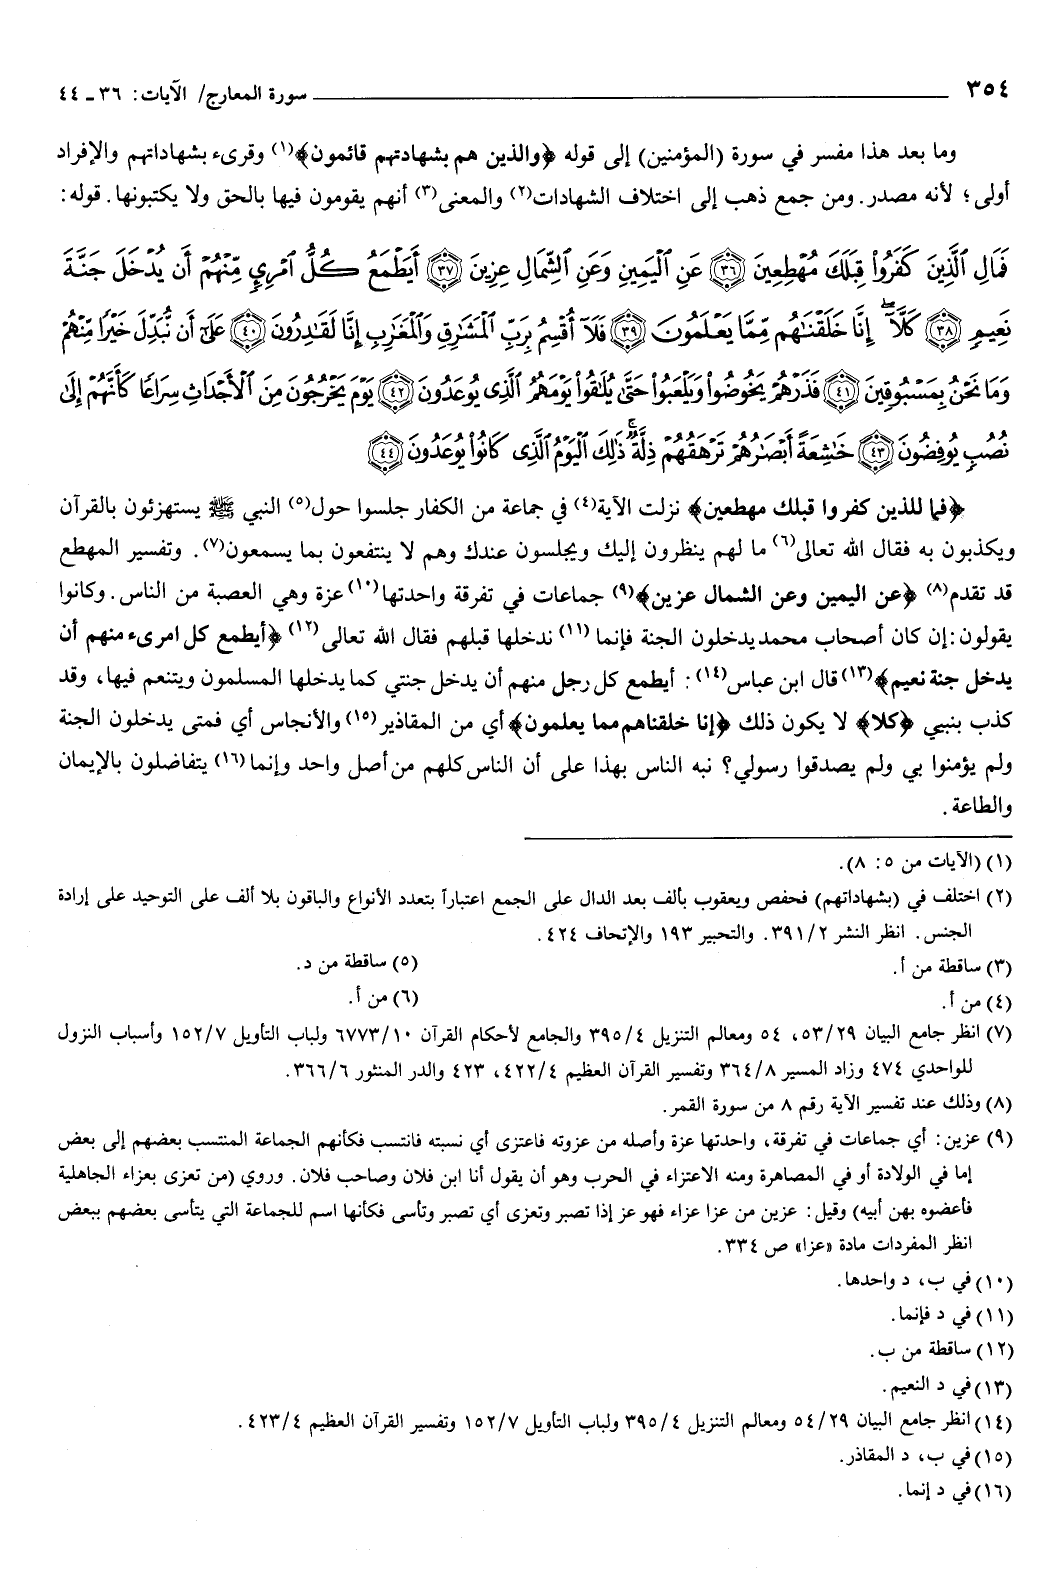 ٣٥٤ ــــــــــ سورة المعارج/ الآيات: ٣٦ ـ ٤٤
وما بعد هذا مفسر في سورة (المؤمنين) إلى قوله ﴿والذين هم بشهادتهم قائمون﴾(١) وقرىء بشهاداتهم والإفراد
أولى؛ لأنه مصدر. ومن جمع ذهب إلى اختلاف الشهادات(٢) والمعنى(٣) أنهم يقومون فيها بالحق ولا يكتبونها. قوله:
فَمَالِ ٱلَّذِينَ كَفَرُوا۟ قِبَلَكَ مُهْطِعِينَ ٣٦ عَنِ ٱلْيَمِينِ وَعَنِ ٱلشِّمَالِ عِزِينَ ٣٧ أَيَطْمَعُ كُلُّ ٱمْرِئٍ مِّنْهُمْ أَن يُدْخَلَ جَنَّةَ
نَعِيمٍ ٣٨ كَلَّآ ۖ إِنَّا خَلَقْنَٰهُم مِّمَّا يَعْلَمُونَ ٣٩ فَلَآ أُقْسِمُ بِرَبِّ ٱلْمَشَٰرِقِ وَٱلْمَغَٰرِبِ إِنَّا لَقَٰدِرُونَ ٤٠ عَلَىٰٓ أَن نُّبَدِّلَ خَيْرًا مِّنْهُمْ
وَمَا نَحْنُ بِمَسْبُوقِينَ ٤١ فَذَرْهُمْ يَخُوضُوا۟ وَيَلْعَبُوا۟ حَتَّىٰ يُلَٰقُوا۟ يَوْمَهُمُ ٱلَّذِى يُوعَدُونَ ٤٢ يَوْمَ يَخْرُجُونَ مِنَ ٱلْأَجْدَاثِ سِرَاعًا كَأَنَّهُمْ إِلَىٰ
نُصُبٍ يُوفِضُونَ ٤٣ خَٰشِعَةً أَبْصَٰرُهُمْ تَرْهَقُهُمْ ذِلَّةٌ ۚ ذَٰلِكَ ٱلْيَوْمُ ٱلَّذِى كَانُوا۟ يُوعَدُونَ ٤٤
﴿فما للذين كفروا قبلك مهطعين﴾ نزلت الآية(٤) في جماعة من الكفار جلسوا حول(٥) النبي ﷺ يستهزئون بالقرآن
ويكذبون به فقال الله تعالى(٦) ما لهم ينظرون إليك ويجلسون عندك وهم لا ينتفعون بما يسمعون(٧). وتفسير المهطع
قد تقدم(٨) ﴿عن اليمين وعن الشمال عزين﴾(٩) جماعات في تفرقة واحدتها(١٠) عزة وهي العصبة من الناس. وكانوا
يقولون: إن كان أصحاب محمد يدخلون الجنة فإنما (١١) ندخلها قبلهم فقال الله تعالى(١٢) ﴿أيطمع كل امرىء منهم أن
يدخل جنة نعيم﴾(١٣) قال ابن عباس(١٤): أيطمع كل رجل منهم أن يدخل جنتي كما يدخلها المسلمون ويتنعم فيها، وقد
كذب بنبيي ﴿كلا﴾ لا يكون ذلك ﴿إنا خلقناهم مما يعلمون﴾ أي من المقاذير(١٥) والأنجاس أي فمتى يدخلون الجنة
ولم يؤمنوا بي ولم يصدقوا رسولي؟ نبه الناس بهذا على أن الناس كلهم من أصل واحد وإنما(١٦) يتفاضلون بالإيمان
والطاعة.
(١) (الآيات من ٥: ٨).
(٢) اختلف في (بشهاداتهم) فحفص ويعقوب بألف بعد الدال على الجمع اعتباراً بتعدد الأنواع والباقون بلا ألف على التوحيد على إرادة
الجنس. انظر النشر ٣٩١/٢. والتحبير ١٩٣ والإتحاف ٤٢٤.
(٣) ساقطة من أ.
(٤) من أ.
(٥) ساقطة من د.
(٦) من أ.
(٧) انظر جامع البيان ٥٣/٢٩، ٥٤ ومعالم التنزيل ٣٩٥/٤ والجامع لأحكام القرآن ٦٧٧٣/١٠ ولباب التأويل ١٥٢/٧ وأسباب النزول
للواحدي ٤٧٤ وزاد المسير ٣٦٤/٨ وتفسير القرآن العظيم ٤٢٢/٤، ٤٢٣ والدر المنثور ٣٦٦/٦.
(٨) وذلك عند تفسير الآية رقم ٨ من سورة القمر.
(٩) عزين: أي جماعات في تفرقة، واحدتها عزة وأصله من عزوته فاعتزى أي نسبته فانتسب فكأنهم الجماعة المنتسب بعضهم إلى بعض
إما في الولادة أو في المصاهرة ومنه الاعتزاء في الحرب وهو أن يقول أنا ابن فلان وصاحب فلان. وروي (من تعزى بعزاء الجاهلية
فأعضوه بهن أبيه) وقيل: عزين من عزا عزاء فهو عز إذا تصبر وتعزى أي تصبر وتأسى فكأنها اسم للجماعة التي يتأسى بعضهم ببعض
انظر المفردات مادة «عزا» ص ٣٣٤.
(١٠) في ب، د واحدها.
(١١) في د فإنما.
(١٢) ساقطة من ب.
(١٣) في د النعيم.
(١٤) انظر جامع البيان ٥٤/٢٩ ومعالم التنزيل ٣٩٥/٤ ولباب التأويل ١٥٢/٧ وتفسير القرآن العظيم ٤٢٣/٤.
(١٥) في ب، د المقاذر.
(١٦) في د إنما.